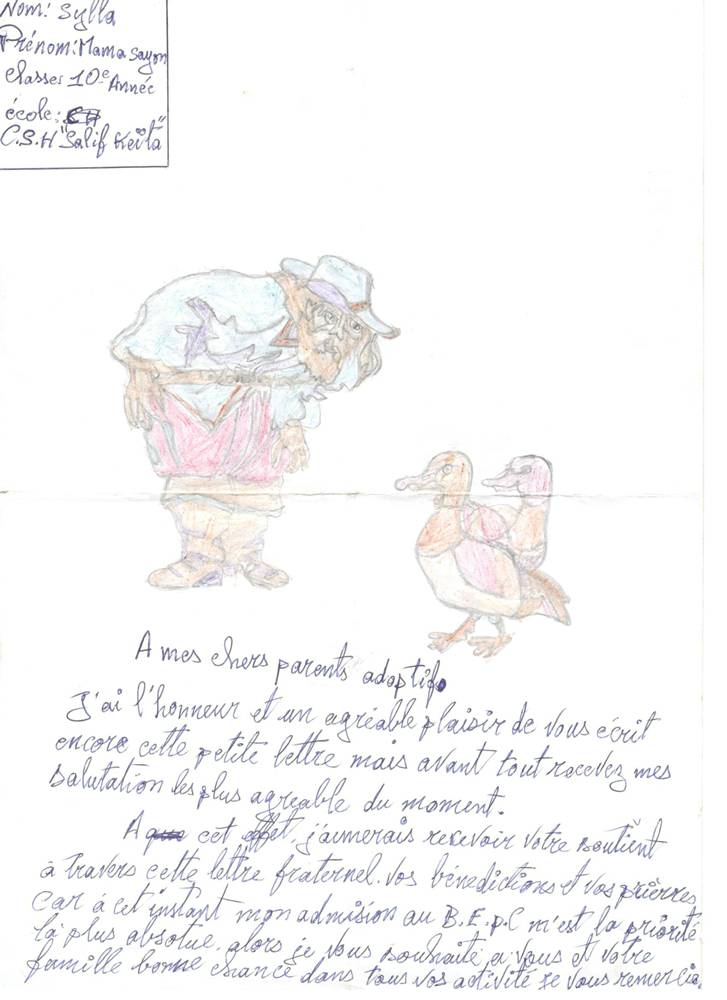 Nom: Sylla
Prénom: Mama Sayon
Classes 10e Année
école:
C.S.H "Salif Keïta"
A mes chers parents adoptifs
J'ai l'honneur et un agréable plaisir de vous écrit
encore cette petite lettre mais avant tout recevez mes
salutation les plus agreable du moment.
A cet effet, j'aumerais recevoir votre soutient
à travers cette lettre fraternel. Vos bénedictions et vos prièrres
Car à cet instant mon admision au B.E.P.C m'est la priorité
la plus absolue. alors je vous souhaite a vous et votre
famille bonne chance dans tous vos activité je vous remercie.